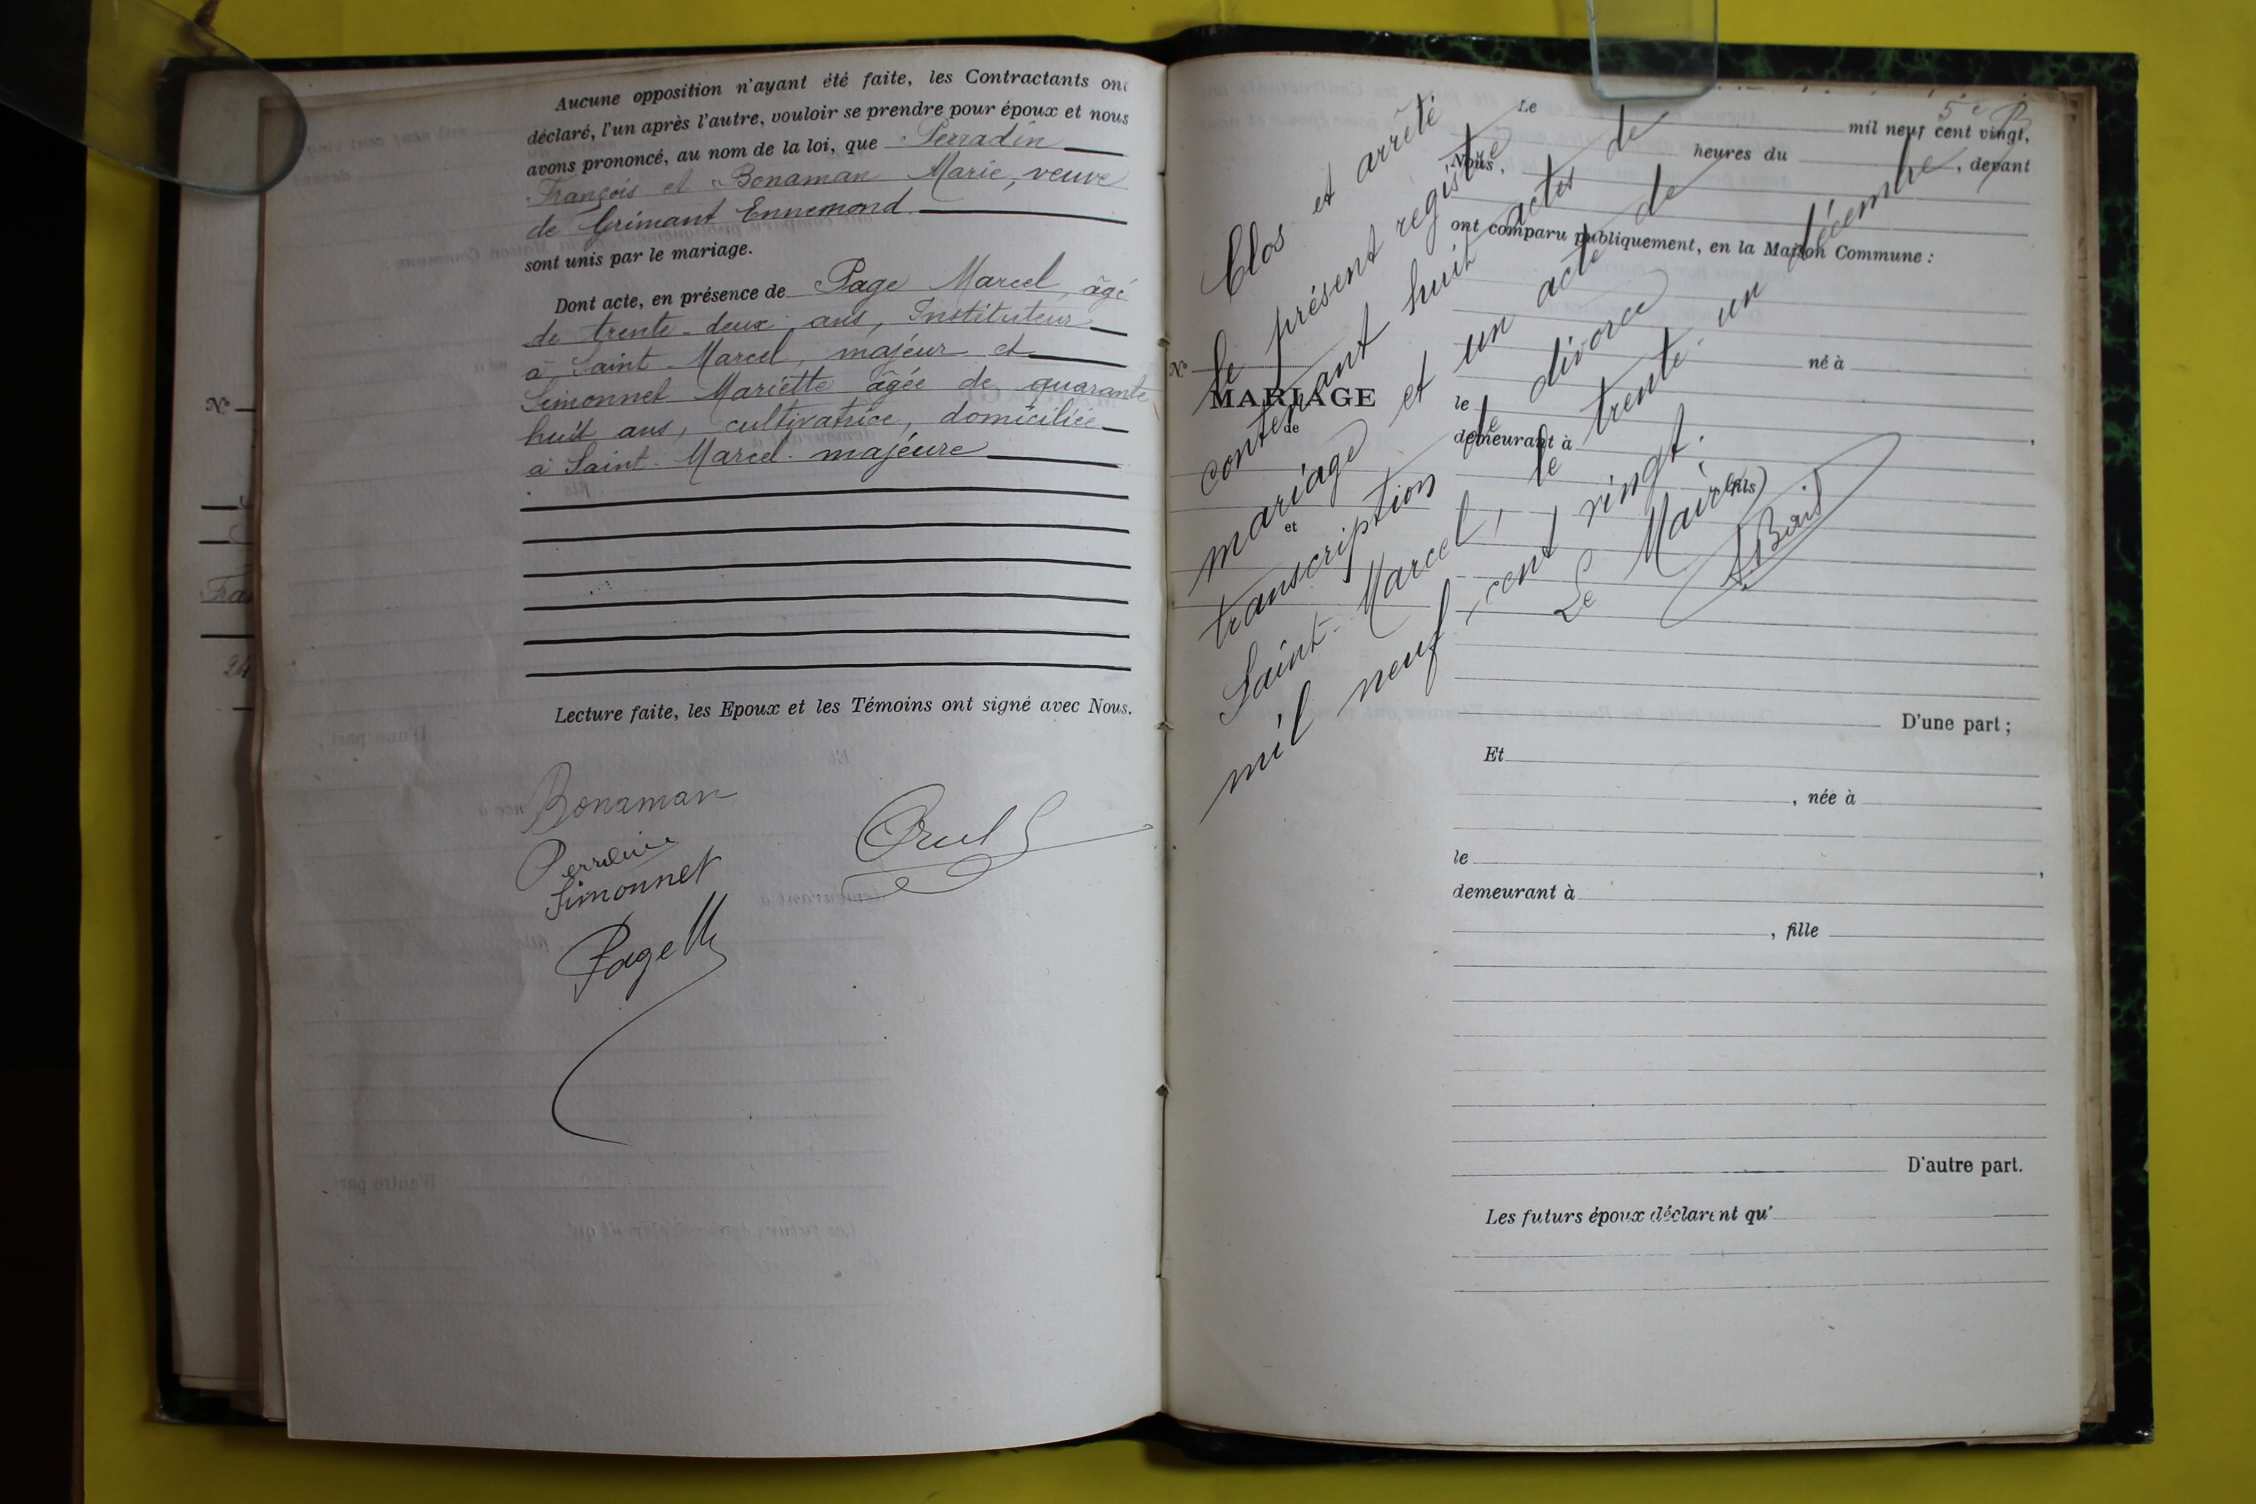 Aucune opposition n'ayant été faite, les Contractants ont
déclaré, l'un après l'autre, vouloir se prendre pour époux et nous
avons prononcé, au nom de la loi, que Perradin
François et Bonaman Marie, veuve
de Grimant Ennemond
sont unis par le mariage.
Dont acte, en présence de Page Marcel, âgé
de trente-deux ans, Instituteur
à Saint-Marcel, majeur et
Simonnet Mariette âgée de quarante
huit ans, cultivatrice, domiciliée
à Saint-Marcel. majeure
Lecture faite, les Epoux et les Témoins ont signé avec Nous.
Bonaman
Simonnet
Page M
N°
24
5e
Le
mil neuf cent vingt,
heures du
, devant
Nous,
ont comparu publiquement, en la Maison Commune :
né à
N°
MARIAGE
de
et
le
demeurant à
, fils
D'une part ;
Et
, née à
le
demeurant à
, fille
D'autre part.
Les futurs époux déclarent qu'
Clos et arrêté
le présent registre
contenant huit actes de
mariage et un acte de
transcription de divorce
Saint-Marcel, le trente-un décembre
mil neuf-cent vingt.
Le Maire